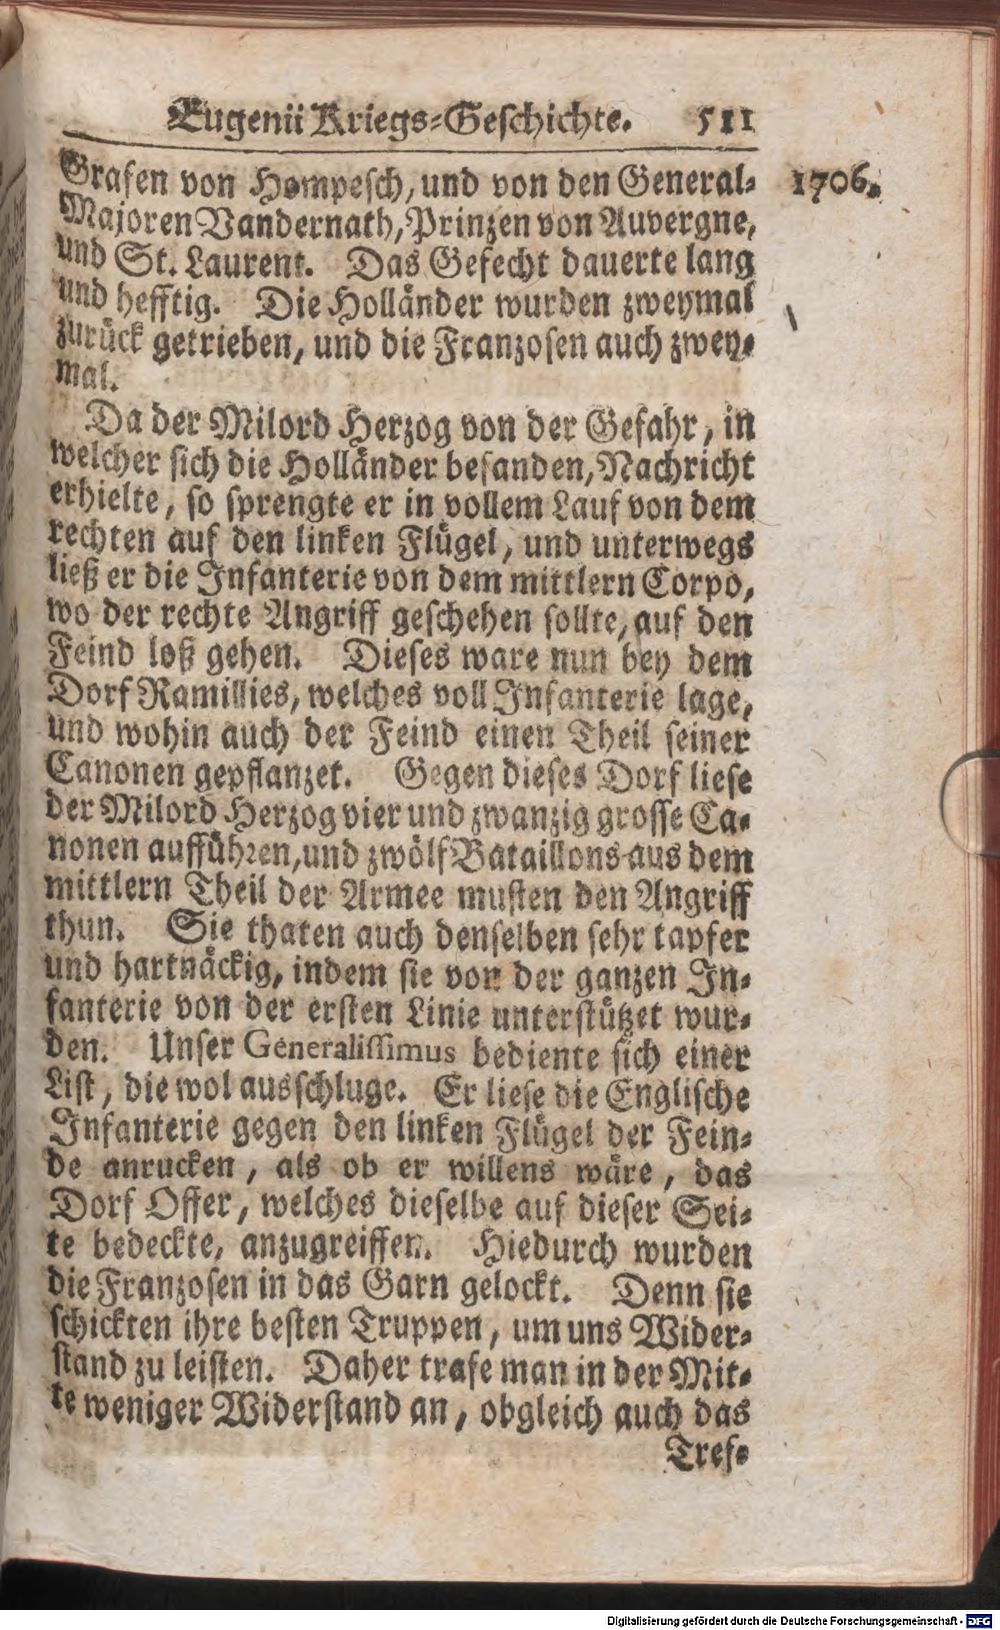 Eugenii Kriegs-Geschichte. 511
Grafen von Hompesch, und von den General- 1706.
Majoren Vandernath, Prinzen von Auvergne,
und St. Laurent. Das Gefecht dauerte lang
und hefftig. Die Holländer wurden zweymal
zurück getrieben, und die Franzosen auch zwey-
mal.
Da der Milord Herzog von der Gefahr, in
welcher sich die Holländer befanden, Nachricht
erhielte, so sprengte er in vollem Lauf von dem
rechten auf den linken Flügel, und unterwegs
ließ er die Infanterie von dem mittlern Corpo,
wo der rechte Angriff geschehen sollte, auf den
Feind loß gehen. Dieses ware nun bey dem
Dorf Ramillies, welches voll Infanterie lage,
und wohin auch der Feind einen Theil seiner
Canonen gepflanzet. Gegen dieses Dorf liese
der Milord Herzog vier und zwanzig grosse Ca-
nonen aufführen, und zwölf Bataillons aus dem
mittlern Theil der Armee musten den Angriff
thun. Sie thaten auch denselben sehr tapfer
und hartnäckig, indem sie von der ganzen In-
fanterie von der ersten Linie unterstützet wur-
den. Unser Generalissimus bediente sich einer
List, die wol ausschluge. Er liese die Englische
Infanterie gegen den linken Flügel der Fein-
de anrucken, als ob er willens wäre, das
Dorf Offer, welches dieselbe auf dieser Sei-
te bedeckte, anzugreiffen. Hiedurch wurden
die Franzosen in das Garn gelockt. Denn sie
schickten ihre besten Truppen, um uns Wider-
stand zu leisten. Daher trafe man in der Mit-
te weniger Widerstand an, obgleich auch das
Tref-
Digitalisierung gefördert durch die Deutsche Forschungsgemeinschaft - DFG